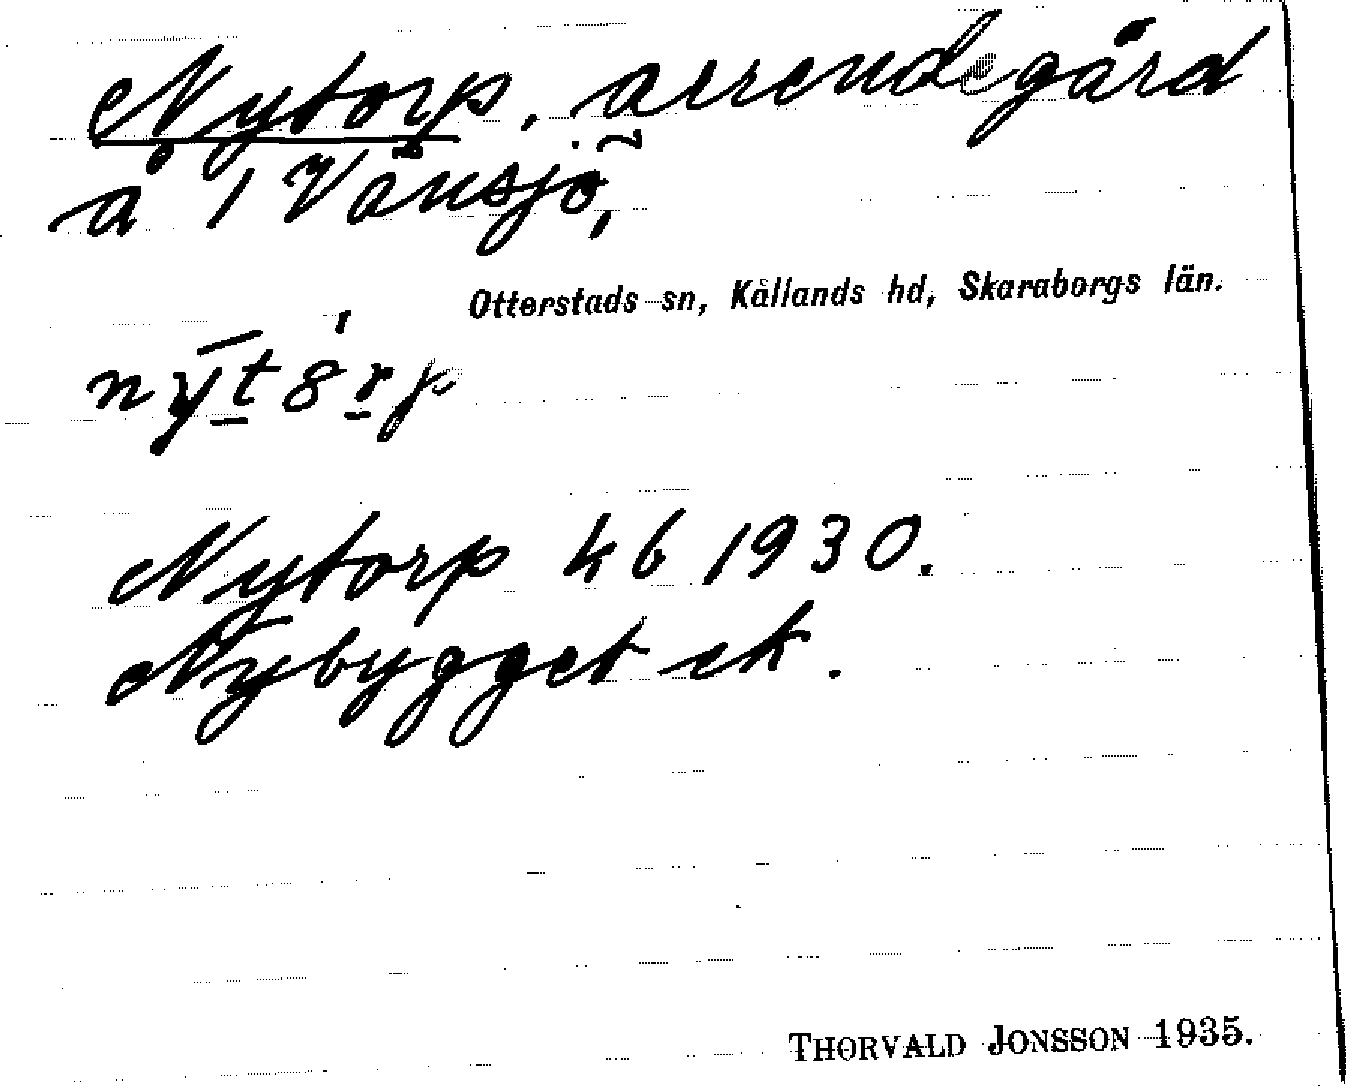 Nytorp, arrendegård
å 1 Vänsjö,
Otterstads sn, Kållands hd, Skaraborgs län.
nȳt8́rp
Nytorp kb 1930.
Nybygget ek.
THORVALD JONSSON 1935.